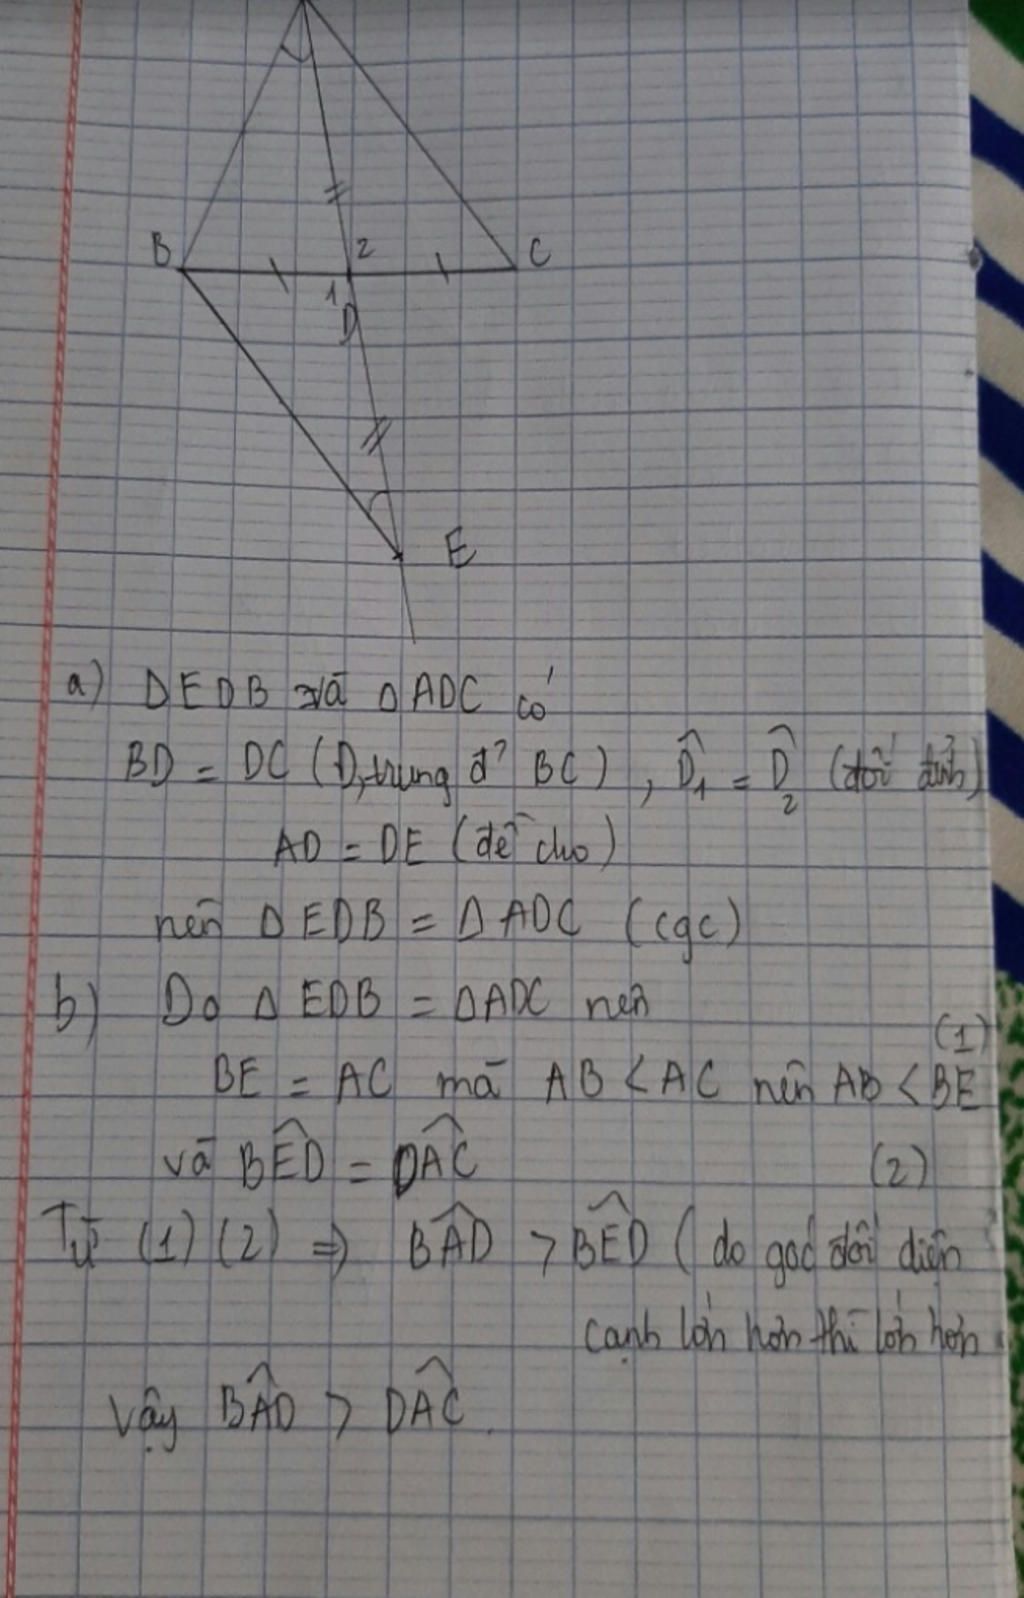 B
2
C
1
D
E
a) ΔEDB và ΔADC có
BD = DC (D, trung đ² BC), D̂₁ = D̂₂ (đối đỉnh)
AD = DE (đề cho)
nên ΔEDB = ΔADC (cgc)
b) Do ΔEDB = ΔADC nên
(1)
BE = AC mà AB < AC nên AB < BE
và BÊD = DÂC (2)
Từ (1) (2) ⇒ BÂD > BÊD (do góc đối diện
cạnh lớn hơn thì lớn hơn
Vậy BÂD > DÂC.